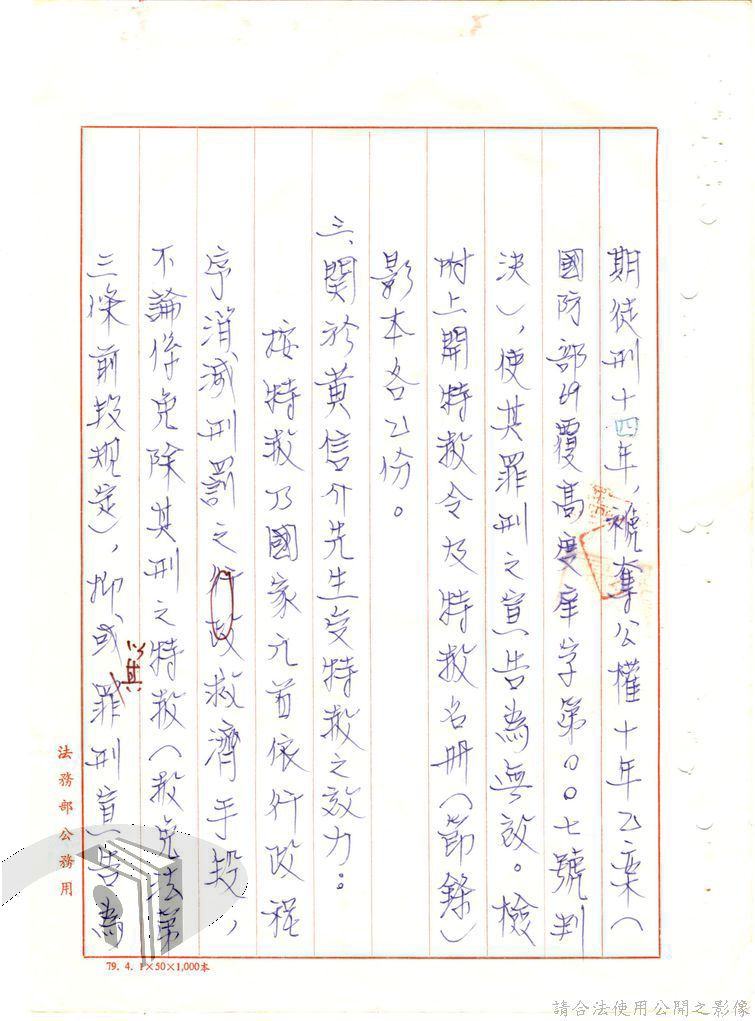 期徒刑十四年，褫奪公權十年乙案（
國防部69覆高度庠字第００七號判
決），使其罪刑之宣告為無效。檢
附上開特赦令及特赦名冊（節錄）
影本各乙份。
三、關於黃信介先生受特赦之效力：
按特赦乃國家元首依行政程
序消滅刑罰之行政救濟手段，
不論係免除其刑之特赦（赦免法第
三條前段規定），抑或以其罪刑宣告為
法務部公務用
79. 4. 1×50×1,000本
請合法使用公開之影像